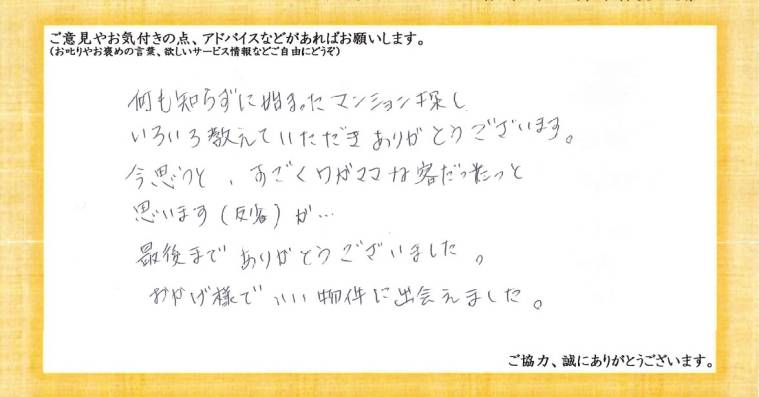 ご意見やお気付きの点、アドバイスなどがあればお願いします。
(お叱りやお褒めの言葉、欲しいサービス情報などご自由にどうぞ)
何も知らずに始まったマンション探し
いろいろ教えていただきありがとうございます。
今思うと、すごくワガママな客だったっと
思います(反省)が…
最後までありがとうございました。
おかげ様でいい物件に出会えました。
ご協力、誠にありがとうございます。